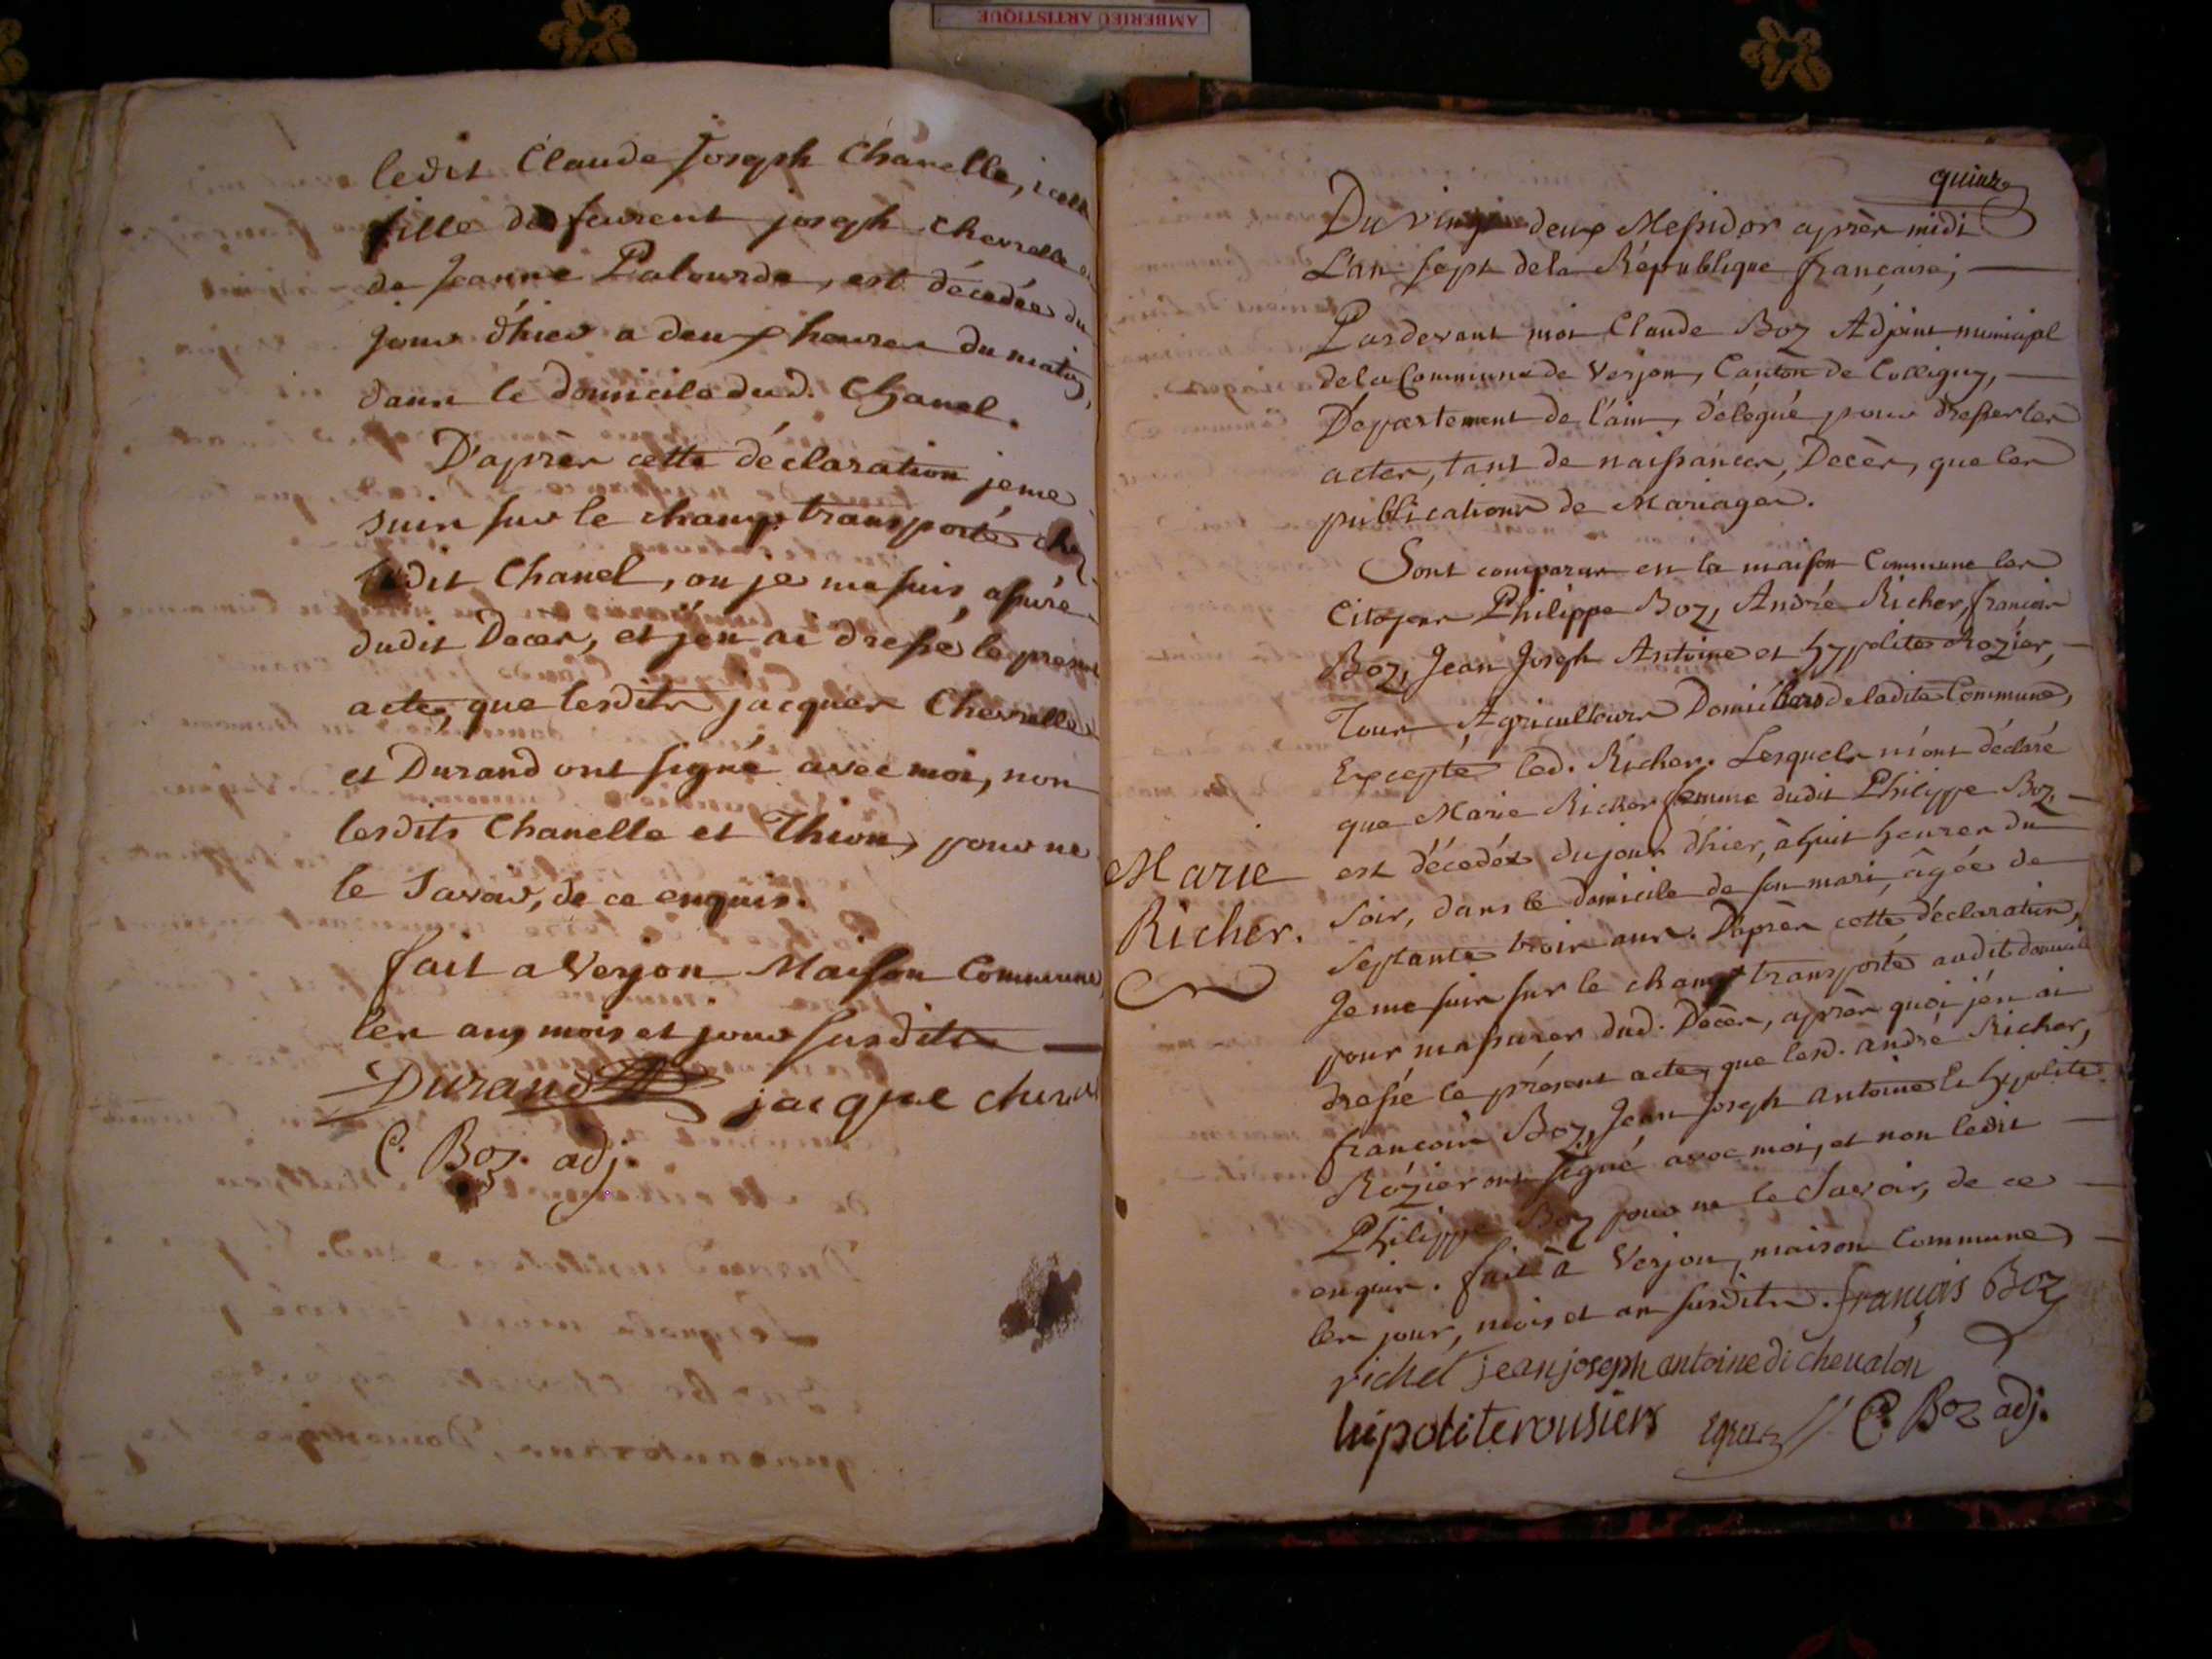 AMBERIEU ARTISTIQUE
ledit Claude Joseph Chanelle, icelle
fille de feurent joseph chevrelle
de Jeanne Palourde, est décedée du
jour d'hier a deux heures du matin,
dans le domicile dud. Chanel.
D'après cette déclaration je me
suis sur le champ transporté chez
ledit Chanel, ou je me suis assuré
dudit Deces, et j'en ai dressé le present
acte, que lesdits jacques Chevrelle
et Durand ont signé avec moi, non
lesdits Chanelle et Thion, pour ne
le Savoir, de ce enquis.
fait a Verjon Maison Commune
les an, mois et jour susdits
Durand jacque
C. Boz. adj.
quinze
Du vingt deux Messidor après midi
L'an sept de la République française;
Pardevant moi Claude Boz Adjoint municipal
de la Commune de Verjon, Canton de Colligny,
Département de l'ain, délégué pour dresser les
actes, tant de naissances, Décès, que les
publications de Mariages.
Sont comparus en la maison Commune les
Citoyens Philippe Boz, André Richer, françois
Boz, Jean Joseph Antoine et hypolite Rozier,
Tous Agriculteurs Domiciliers de ladite Commune,
Excepté led. Richer. Lesquels m'ont déclaré
que Marie Richer femme dudit Philippe Boz,
est décedée du jour d'hier, à huit heures du
Marie
Richer.
soir, dans le domicile de son mari, âgée de
septante trois ans. D'après cette déclaration,
Je me suis sur le champ transporté audit domicile
pour m'assurer dud. Décès, après quoi j'en ai
dressé le présent acte, que lesd. andré Richer,
françois Boz, Jean Joseph antoine et hypolite
Rozier ont signé avec moi, et non ledit
Philippe Boz pour ne le Savoir, de ce
enquis. fait à Verjon, maison Commune
les jour, mois et an susdits. françois Boz
richel jean joseph antoine di chevalon
hipolite rousiers C. Boz adj.